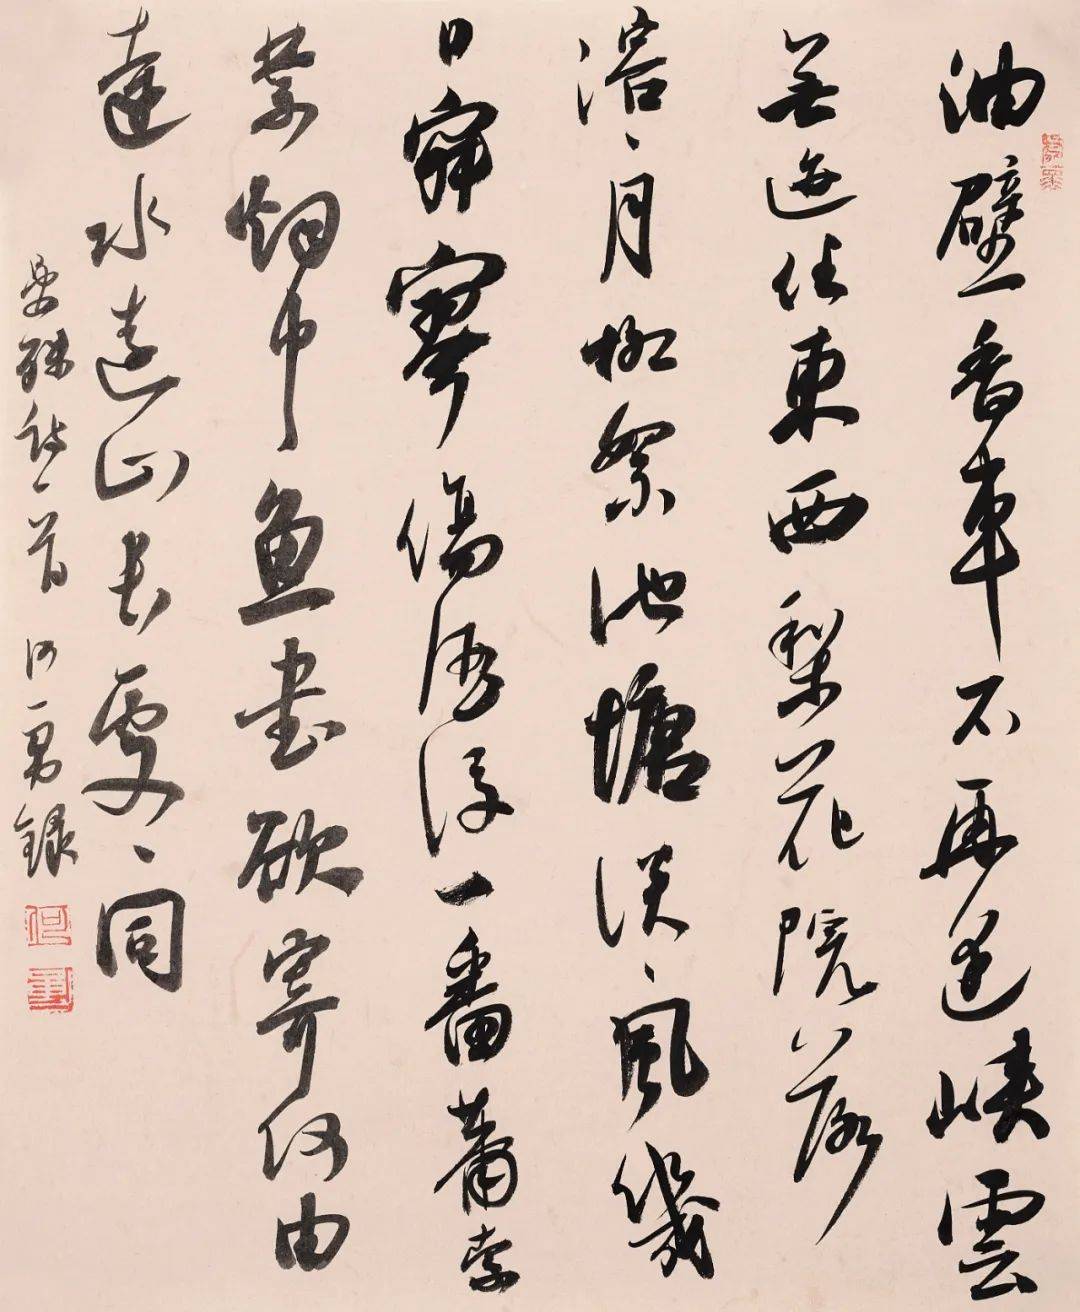 油壁香車不再逢峽雲
無迹任東西梨花院落
溶〻月柳絮池塘淡〻風幾
日寂寥傷酒後一番蕭索
禁烟中魚書欲寄何由
達水遠山長處〻同
晏殊詩一首 何勇錄